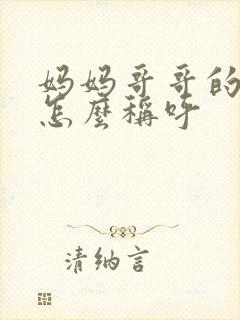 妈妈哥哥的
怎麼稱呼
清纳言